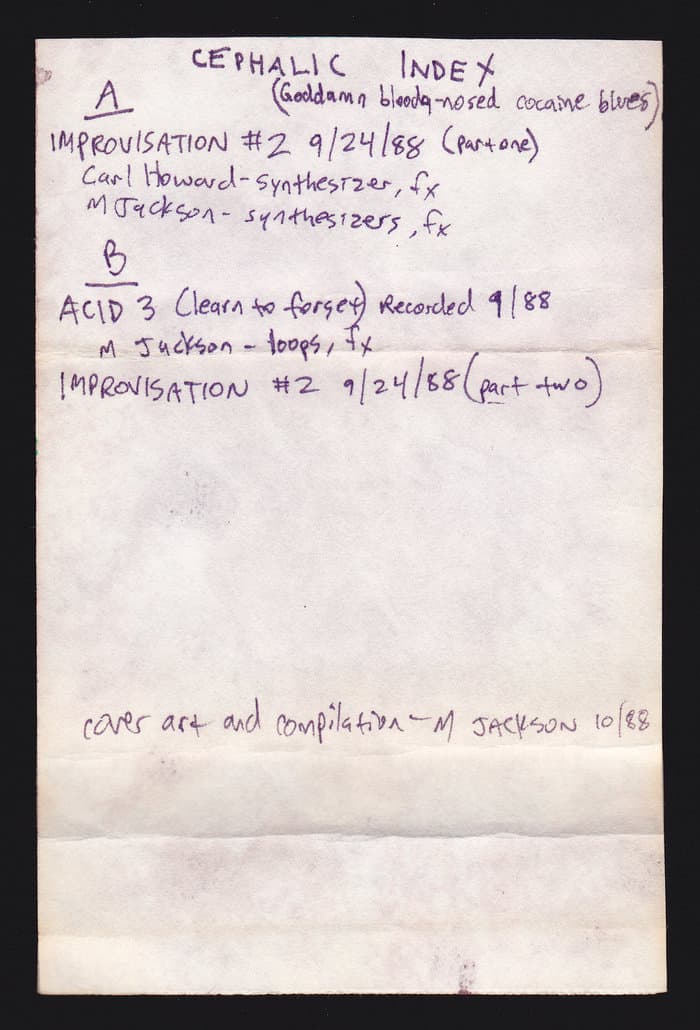 CEPHALIC INDEX
(Goddamn bloody-nosed cocaine blues)
A
IMPROVISATION #2 9/24/88 (part one)
Carl Howard - synthesizer, fx
M Jackson - synthesizers, fx
B
ACID 3 (learn to forget) Recorded 9/88
M Jackson - loops, fx
IMPROVISATION #2 9/24/88 (part two)
cover art and compilation - M JACKSON 10/88